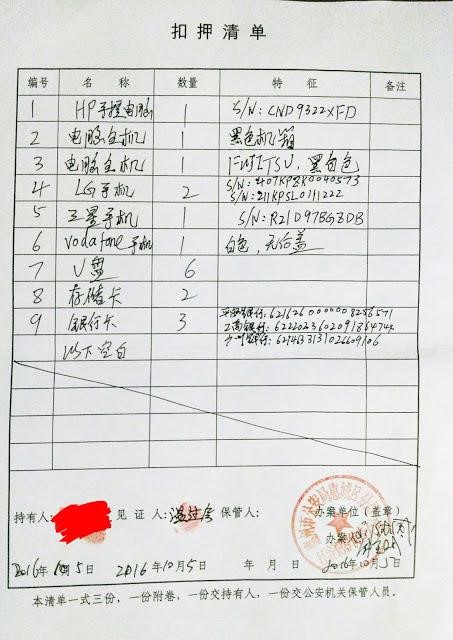 扣押清单
编号 名称 数量 特征 备注
1 HP手提电脑 1 S/N: CND9322XFD
2 电脑主机 1 黑色机箱
3 电脑主机 1 FUJITSU, 黑白色
4 LG手机 2 S/N: 407KPZK0040573
S/N: 211KPSL0111222
5 三星手机 1 S/N: R21D97BGZDB
6 vodafone手机 1 白色, 无后盖
7 U盘 6
8 存储卡 2
9 银行卡 3 平安银行: 6216260000008256571
工商银行: 6222023602091864744
银行: 621483131026609106
以下空白
持有人: 见证人: 保管人: 办案单位(盖章)
办案人:
2016年10月5日 2016年10月5日 年月日 2016年10月5日
本清单一式三份,一份附卷,一份交持有人,一份交公安机关保管人员。